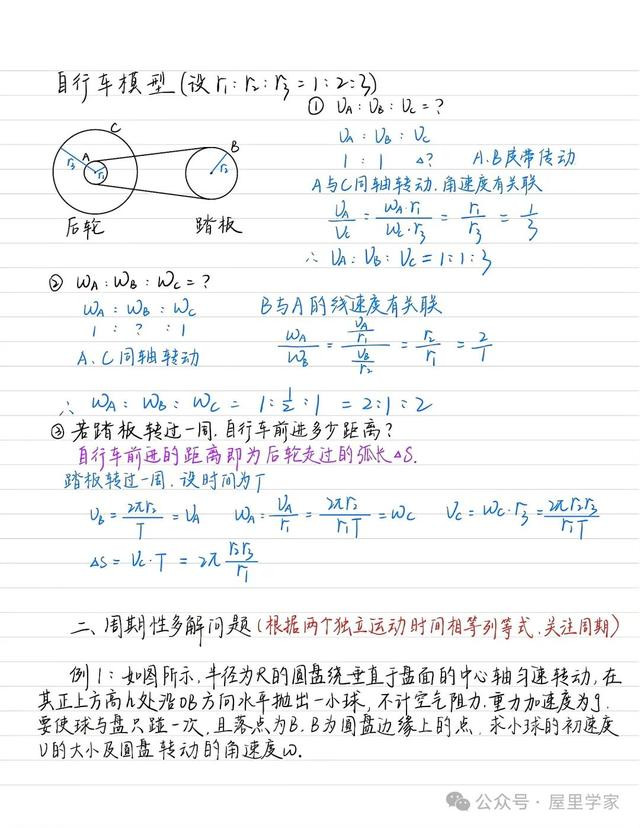 自行车模型(设r₁:r₂:r₃=1:2:3)
① υA:υB:υC=?
υA:υB:υC
1 : 1 Δ? A.B皮带传动
A与C同轴转动,角速度有关联
υA/υC = ωA·r₁/ωC·r₃ = r₁/r₃ = 1/3
∴ υA:υB:υC=1:1:3
C
A
B
r₃
r₁
r₂
后轮 踏板
② ωA:ωB:ωC=?
ωA:ωB:ωC
1 : ? : 1
A.C同轴转动
B与A的线速度有关联
ωA/ωB = (υA/r₁)/(υB/r₂) = r₂/r₁ = 2/1
∴ ωA:ωB:ωC = 1:1/2:1 = 2:1:2
③ 若踏板转过一周.自行车前进多少距离?
自行车前进的距离即为后轮走过的弧长ΔS.
踏板转过一周.设时间为T
υB=2πr₂/T=υA ωA=υA/r₁=2πr₂/r₁T=ωC υC=ωC·r₃=2πr₂r₃/r₁T
ΔS=υC·T=2π r₂r₃/r₁
二、周期性多解问题(根据两个独立运动时间相等列等式.关注周期)
例1:如图所示.半径为R的圆盘绕垂直于盘面的中心轴匀速转动,在
其正上方h处沿OB方向水平抛出一小球,不计空气阻力.重力加速度为g.
要使球与盘只碰一次,且落点为B.B为圆盘边缘上的点.求小球的初速度
υ的大小及圆盘转动的角速度ω.
公众号·屋里学家